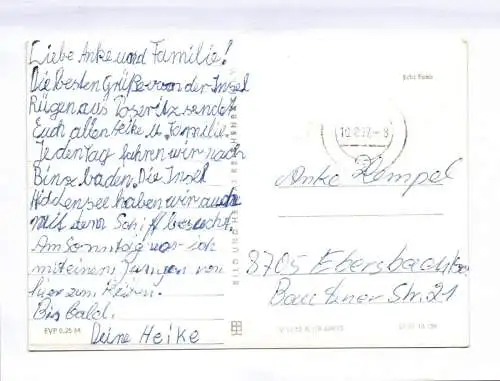 Liebe Anke und Familie!
Die besten Grüße von der Insel
Rügen aus Poseritz sendet
Euch allen Heike u. Familie.
Jeden Tag fahren wir nach
Binz baden. Die Insel
Hiddensee haben wir auch
mit dem Schiff besucht.
Am Sonntag war ich
mit einem Jungen von
hier zum Reiten.
Bis bald.
Deine Heike
EVP 0,25 M
BILD UND HEIMAT REICHENBACH
Echt Foto
Anke Hempel
8705 Ebersbach
Bautzner Str. 21